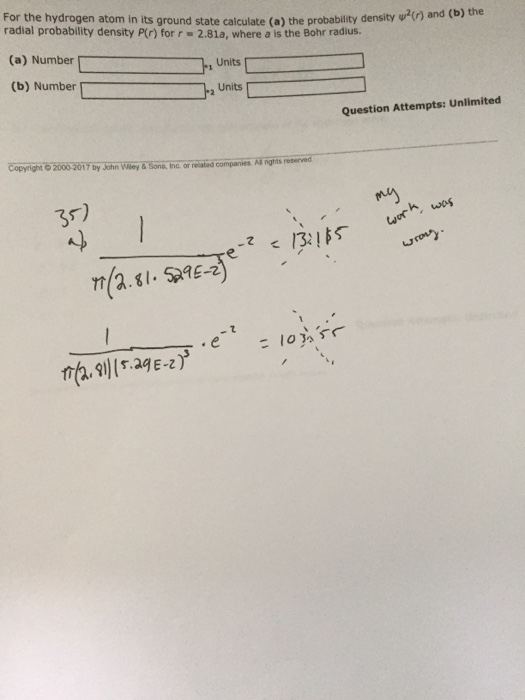 For the hydrogen atom in its ground state calculate (a) the probability density ψ²(r) and (b) the
radial probability density P(r) for r = 2.81a, where a is the Bohr radius.
(a) Number *1 Units
(b) Number *2 Units
Question Attempts: Unlimited
Copyright © 2000-2017 by John Wiley & Sons, Inc. or related companies. All rights reserved.
my
work, was
wrong.
35)
a) 1
π(2.81·529E-2)³ e⁻² =
1
π(2.81)(5.29E-2)³ · e⁻² =